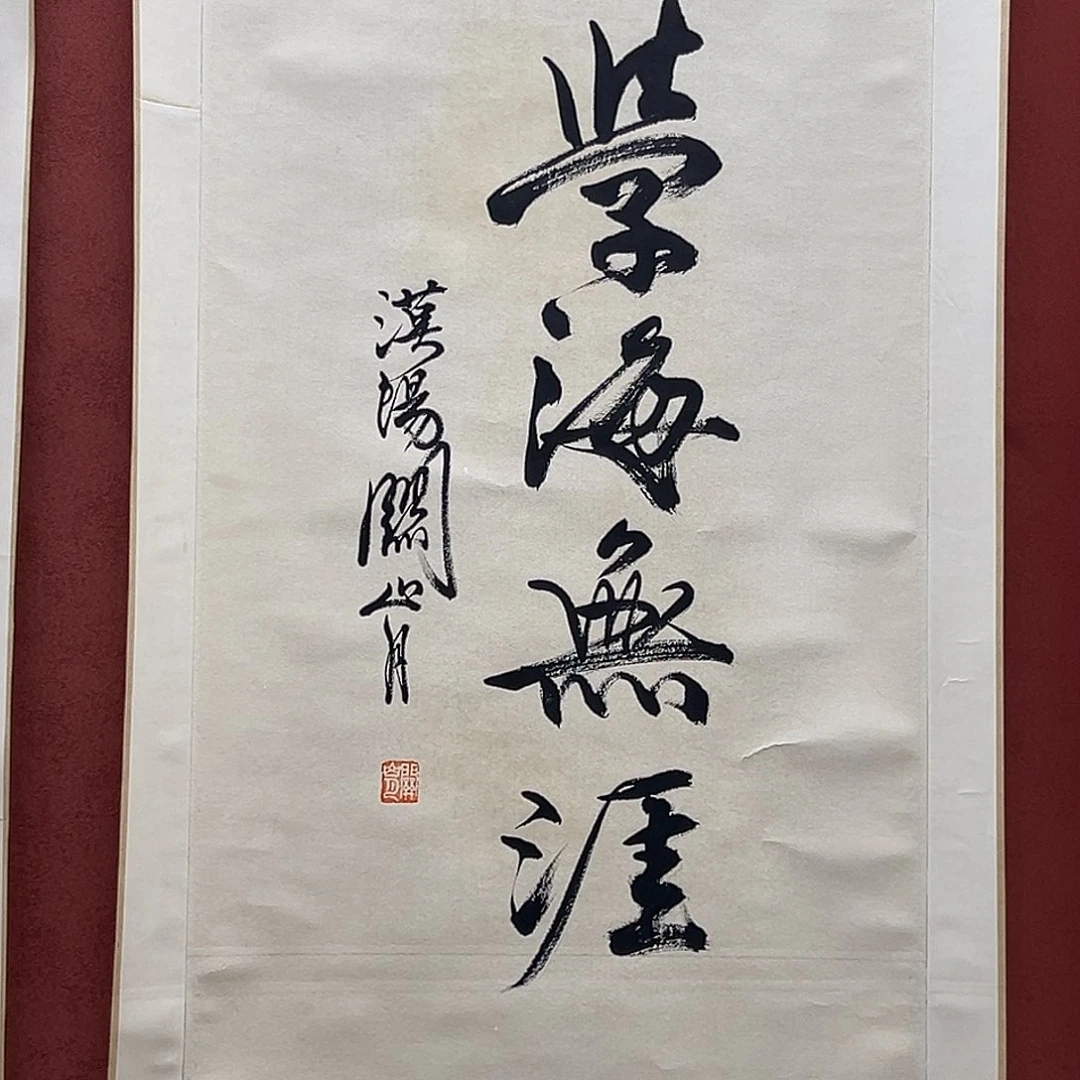 学海無涯
漢陽關山月